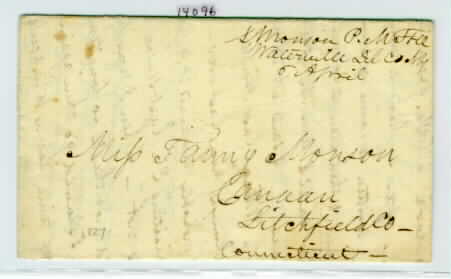 14096
S Monson P. M. Free
Waterville Del Co NY
6 April
Miss Fanny Monson
Canaan
Litchfield Co -
Connecticut -